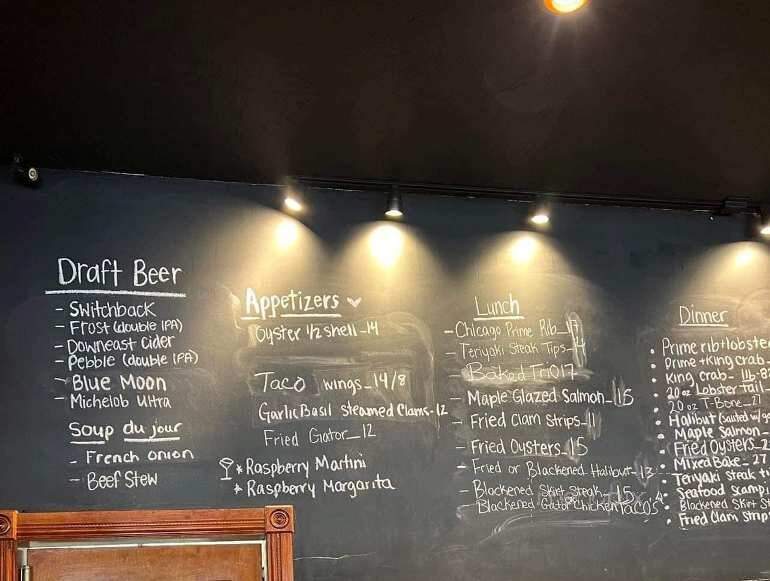 Draft Beer
- Switchback
- Frost (double IPA)
- Downeast cider
- Pebble (double IPA)
- Blue Moon
- Michelob Ultra
Soup du jour
- French onion
- Beef Stew
Appetizers
Oyster 1/2 shell - 14
Taco wings - 14/8
Garlic Basil Steamed Clams - 12
Fried Gator - 12
* Raspberry Martini
* Raspberry Margarita
Lunch
- Chicago Prime Rib - 17
- Teriyaki Steak Tips -
Baked Trio 17
- Maple Glazed Salmon - 15
- Fried Clam Strips - 11
- Fried Oysters - 15
- Fried or Blackened Halibut - 13
- Blackened Skirt Steak - 15
- Blackened Gator Chicken Tacos
Dinner
• Prime rib + lobste
• Prime + King crab -
• King crab - 1lb - 82
• 20oz Lobster Tail -
• 20 oz T-Bone - 27
• Halibut (Sauted w/
• Maple Salmon -
• Fried Oysters - 2
• Mixed Bake - 27
• Teriyaki Steak ti
• Seafood scampi
• Blackened Skirt St
• Fried Clam Strip